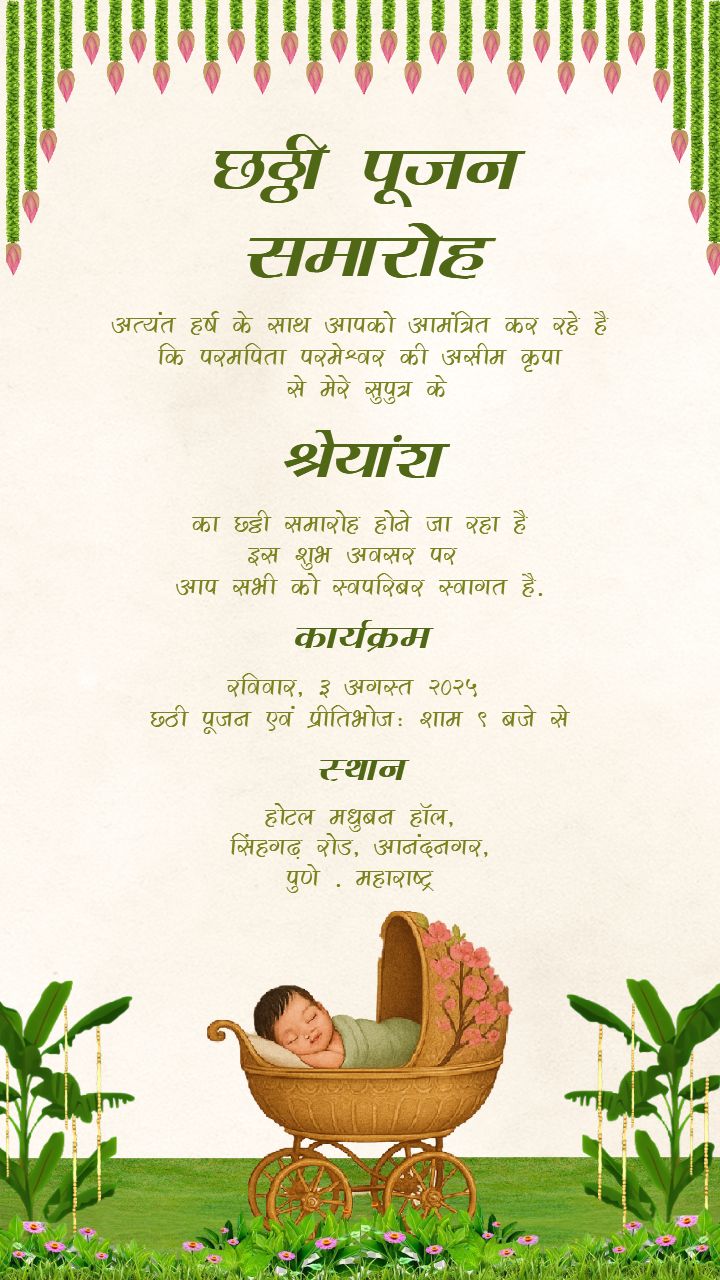 छठ्ठी पूजन
समारोह
अत्यंत हर्ष के साथ आपको आमंत्रित कर रहे है
कि परमपिता परमेश्वर की असीम कृपा
से मेरे सुपुत्र के
श्रेयांश
का छ्ठी समारोह होने जा रहा है
इस शुभ अवसर पर
आप सभी को स्वपरिबर स्वागत है.
कार्यक्रम
रविवार, ३ अगस्त २०२५
छ्ठी पूजन एवं प्रीतिभोज: शाम ९ बजे से
स्थान
होटल मधुबन हॉल,
सिंहगढ़ रोड, आनंदनगर,
पुणे . महाराष्ट्र